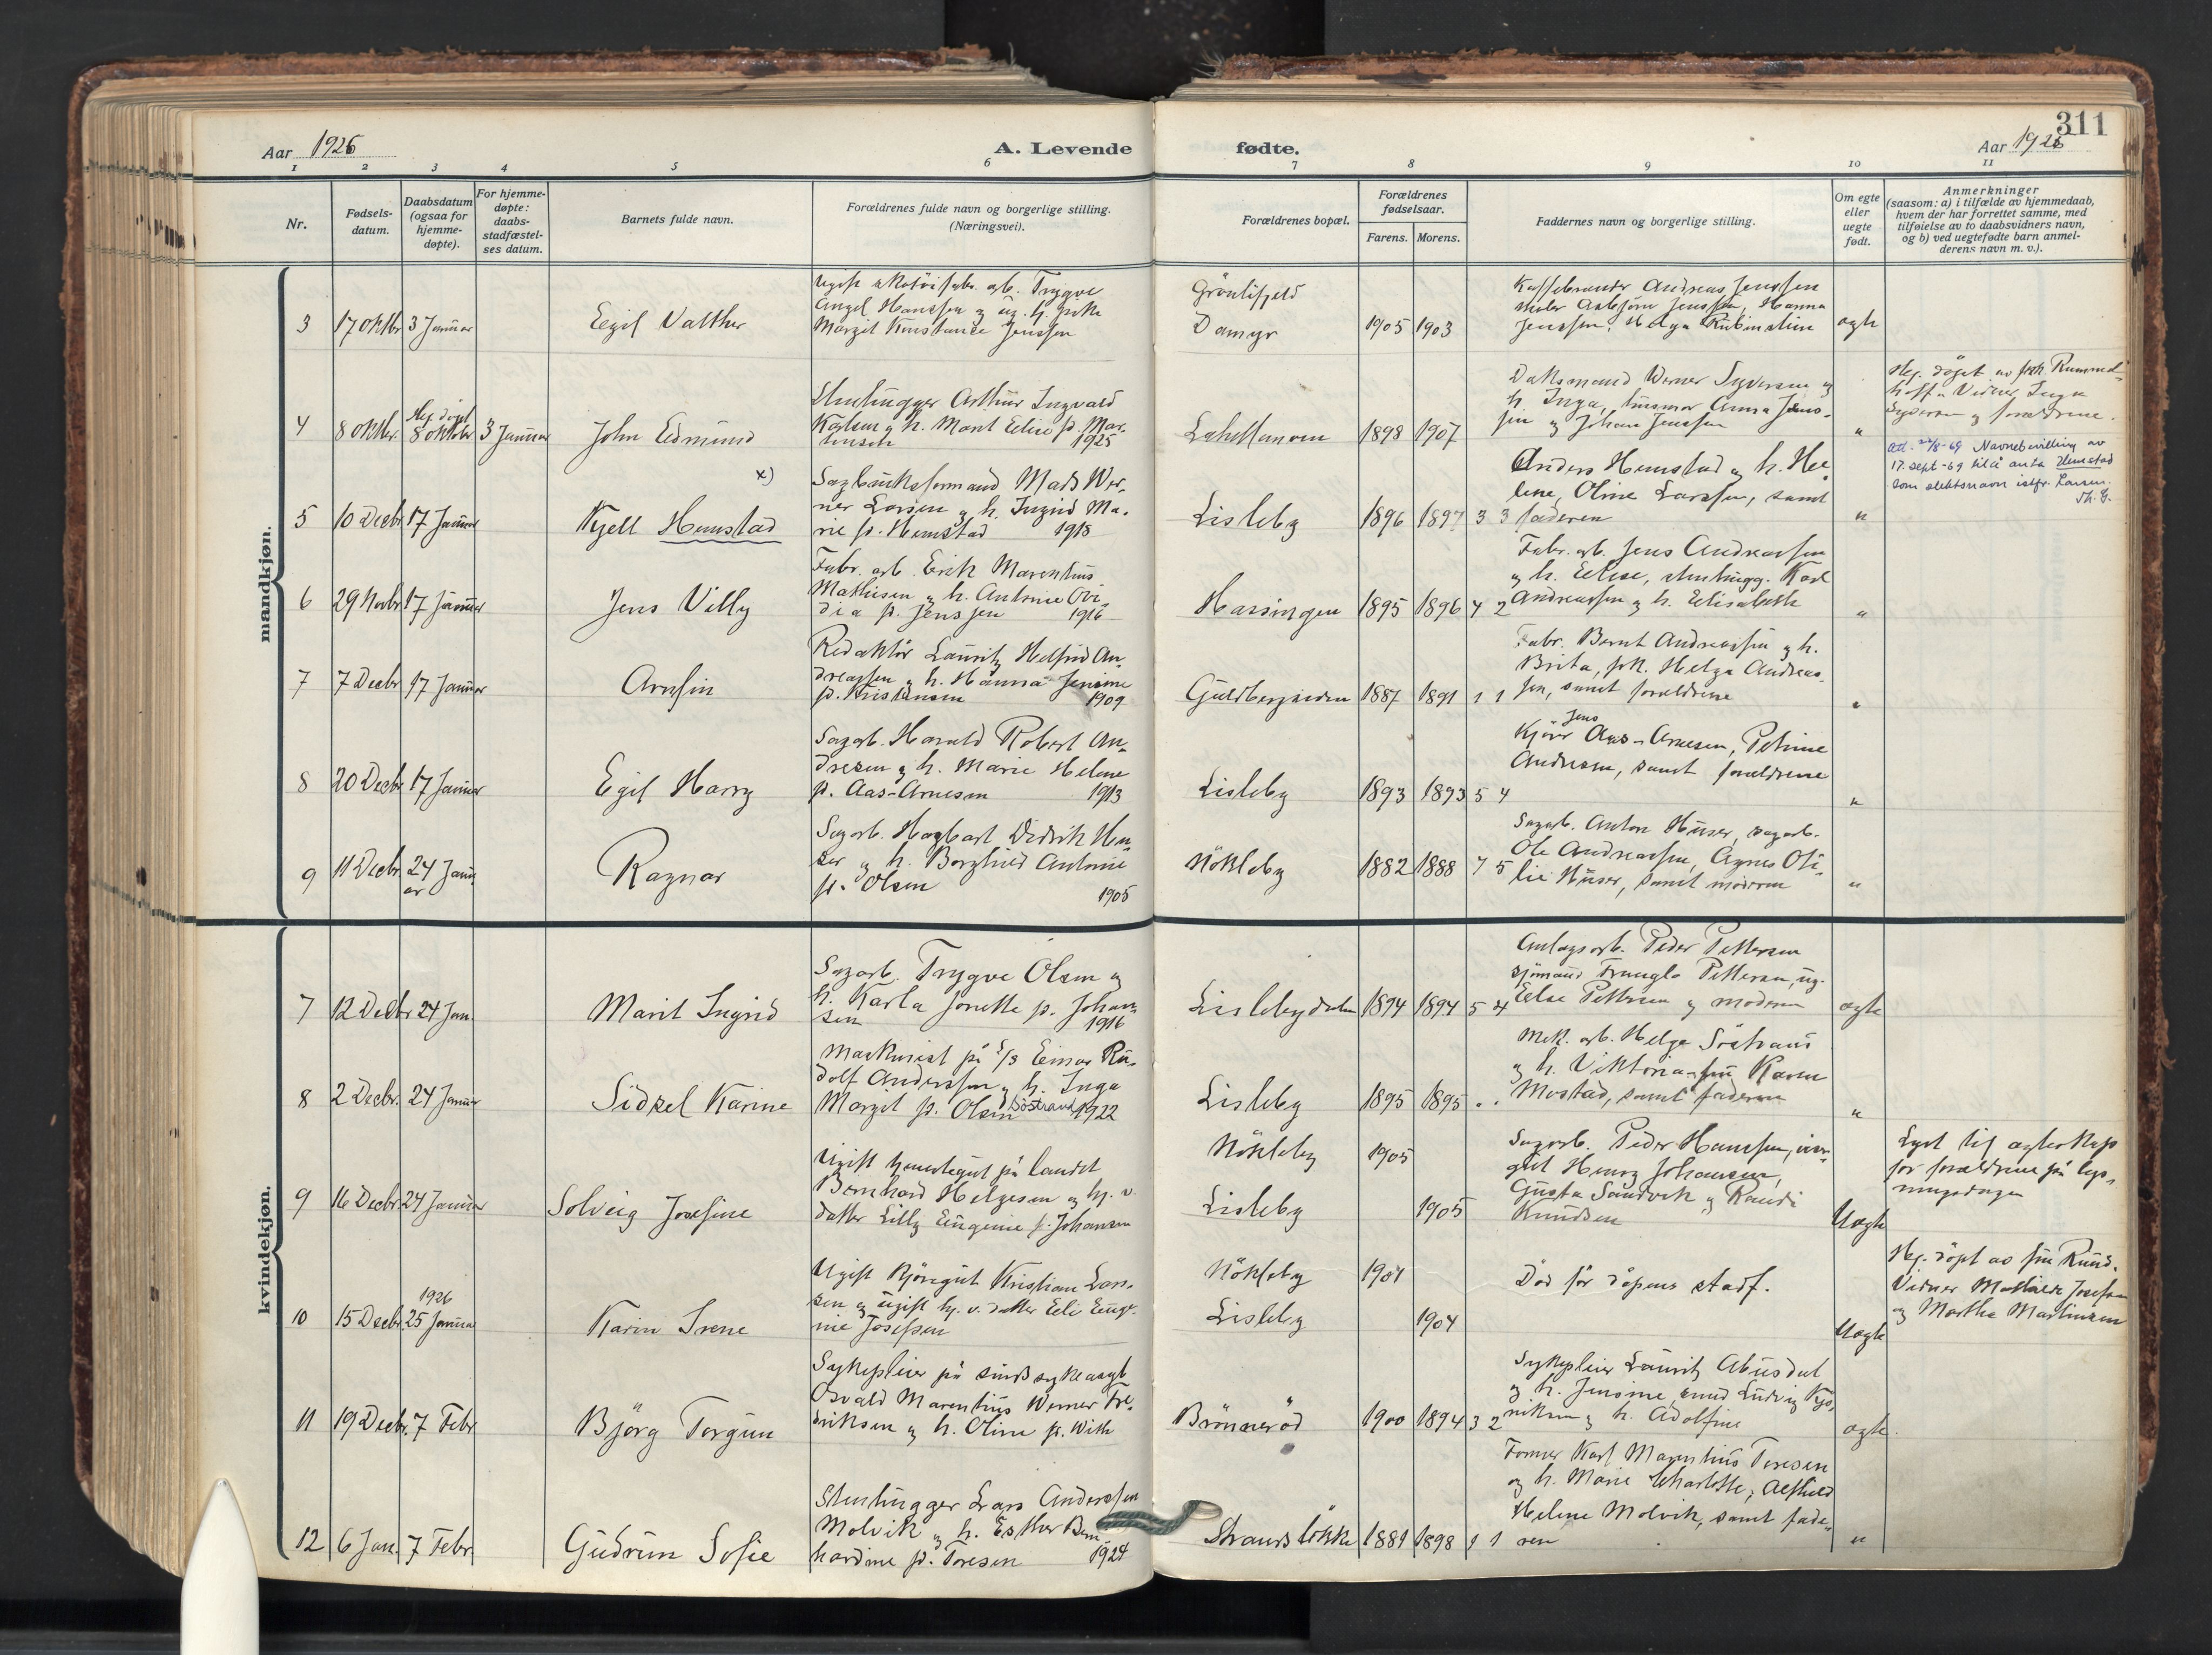 311
Aar 1926
A. Levende
fødte.
Aar 1926
1 2 3 4 5 6 7 8 9 10 11
Nr.
Fødsels-
datum.
Daabsdatum
(ogsaa for
hjemme-
døpte).
For hjemme-
døpte:
daabs-
stadfæstel-
ses datum.
Barnets fulde navn.
Forældrenes fulde navn og borgerlige stilling.
(Næringsvei).
Forældrenes bopæl.
Forældrenes
fødselsaar.
Farens. Morens.
Faddernes navn og borgerlige stilling.
Om egte
eller
uegte
født.
Anmerkninger
(saasom: a) i tilfælde av hjemmedaab,
hvem der har forrettet samme, med
tilføielse av to daabsvidners navn,
og b) ved uegtefødte barn anmel-
derens navn m. v.).
mandkjøn.
3 17 oktbr 3 Januar
Eegil Valther
Trygve
Angel Hanssen og
Margit Konstance Jenssen
Damyr
1905 1903
Kaffebrænder Andreas Jenssen
Asbjørn Jenssen, Hanna
Jenssen, Helga Rubinstein
ægte
4 8 oktbr. Hj. døpt
8 oktober 3 Januar
John Edmund
Stenhugger Arthur Ingvald
Karlsen og h. Marit Elise f. Mar-
tinsen 1925
1898 1907
Werner Syversen og
h. Inga, husmor Anna Jens-
sen og Johan Jenssen
"
Hj. døpt av frk. Rummel-
hoff. Vidner Inga
Syversen og forældrene.
5 10 Decbr 17 Januar
x)
Kjell Hemstad
Sagbruksformand Mads Wer-
ner Larsen og h. Ingrid Ma-
rie f. Hemstad 1918
Lisleby
1896 1897 3 3
Anders Hemstad og h. He-
lene, Oline Larssen, samt
faderen
"
Navnebevilling av
17. sept-69 til å anta Hemstad
som slektsnavn istf. Larsen.
6 29 Novbr 17 Januar
Jens Villy
Fabr. arb. Erik Marenhus
Mathisen og h. Antonie Ovi-
dia f. Jenssen 1916
1895 1896 4 2
Fabr. arb. Jens Andreassen
og h. Elise, stenhugg. Karl
Andreassen og h. Elisabeth
"
7 7 Decbr 17 Januar
Arnfin
Redaktør Lauritz Helfred An-
dreassen og h. Hanna Jensine
f. Kristensen 1909
1887 1891 1 1
Fabr. Bernt Andreassen og h.
Brita, frk. Helga Andreas-
sen, samt forældrene
"
8 20 Decbr 17 Januar
Egil Harry
Sagarb. Harald Robert An-
dresen og h. Marie Helene
f. Aas-Arnesen 1913
Lisleby
1893 1893 5 4
Jens
Aas-Arnesen, Petrine
Andresen, samt forældrene
"
9 11 Decbr. 24 Janu-
ar
Ragnar
Sagarb. Hagbart Didrik Hu-
ser og h. Borghild Antonie
f. Olsen 1905
Nökleby
1882 1888 7 5
Sagarb. Anton Huser, sagarb.
Ole Andreassen, Agnes Oti-
lie Huser, samt moderen
"
kvindekjøn.
7 12 Decbr 24 Jan.
Marit Ingrid
Sagarb. Trygve Olsen og
h. Karla Jonette f. Johan-
sen 1916
Lislebydalen
1894 1894 5 4
Anlægsarb. Peder Pettersen
sjömand Pettersen, ug.
Else Pettersen og moderen
ægte
8 2 Decbr. 24 Januar
Sidsel Karine
Maskinist på S/S Einar Ru-
dolf Anderssen og h. Inga
Margit f. Olsen Söstrand 1922
Lisleby
1895 1895 . .
Mek. arb. Helge Söstrand
og h. Viktoria, fru Karen
Mostad, samt faderen
"
9 16 Decbr. 24 Januar
Solveig Josefine
Ugift tjenestegut på landet
Bernhard Helgesen og hj. v.
datter Lilly Eugenie f. Johansen
Nökleby 1905
Lisleby 1905
Sagarb. Peder Hanssen,
Henry Johansen,
Gusta Sandvik og Randi
Knudsen
Uægte
Lyst til ægteskap
for forældrene på lys-
ningsdagen
10 15 Decbr. 1926
25 Januar
Karin Irene
Ugift Kjöregut Kristian Lar-
sen og ugift hj. v. datter Eli Euge-
nie Josefsen
Nökleby 1901
Lisleby 1904
Död før dåpens stadf.
Uægte
Hj. döpt av fru Rund.
Vidner Mathilde Josefsen
og Martha Martinsen
11 19 Decbr. 7 Febr
Björg Torgun
Sykepleier på sindssykeasyl
Osvald Marenhus Werner Fre-
driksen og h. Oline f. With
Brönneröd
1900 1894 3 2
Sykepleier Lauritz Abusdal
og h. Jensine, Ludvig
og h. Adolfine
ægte.
12 6 Jan. 7 Febr.
Gudrun Sofie
Stenhugger Lars Anderssen
Molvik og h. Esther Bern-
hardine f. Toresen 1924
Strandslökka
1889 1898 1 1
Former Karl Marenhus Toresen
og h. Marie Charlotte, Alfhild
Helene Molvik, samt fade-
ren
"